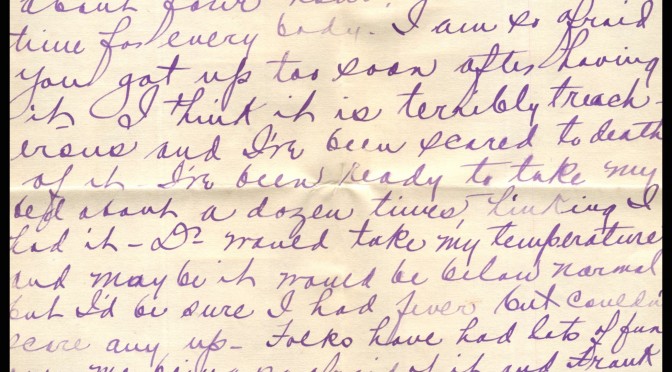 about four
time for every body. I am so afraid
you got up too soon after having
it. I think it is terribly treach-
erous and I've been scared to death
of it. I've been ready to take my
bed about a dozen times, thinking I
had it - Dr would take my temperature
and may be it would be below normal
but I'd be sure I had fever but couldn't
scare any up - Folks have had lots of fun
my being so afraid of it and Frank